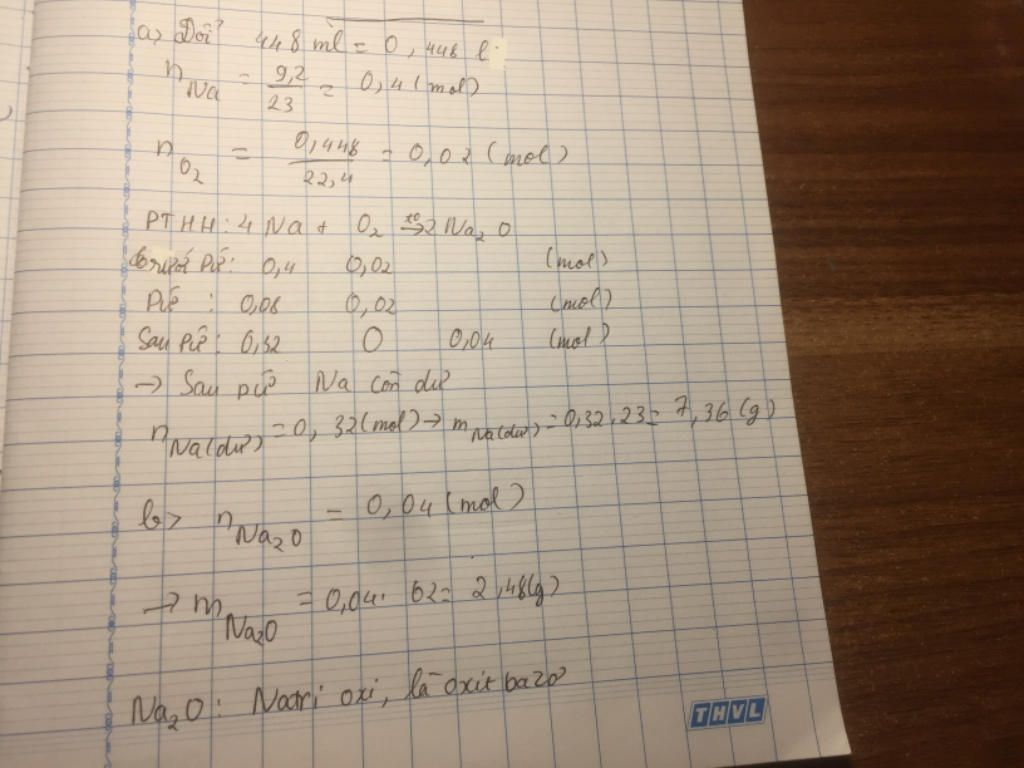 a, Đổi 448 ml = 0,448 l.
n Na = 9,2/23 = 0,4 (mol)
n O2 = 0,448/22,4 = 0,02 (mol)
PTHH: 4 Na + O2 t0→ 2 Na2O
trước pứ: 0,4 0,02 (mol)
pứ : 0,08 0,02 (mol)
Sau pứ: 0,32 0 0,04 (mol)
→ Sau pứ Na còn dư
n Na(dư) = 0,32(mol) → m Na(dư) = 0,32.23 = 7,36 (g)
b> n Na2O = 0,04 (mol)
→ m Na2O = 0,04. 62 = 2,48(g)
Na2O: Natri oxi, là oxit bazơ
THVL